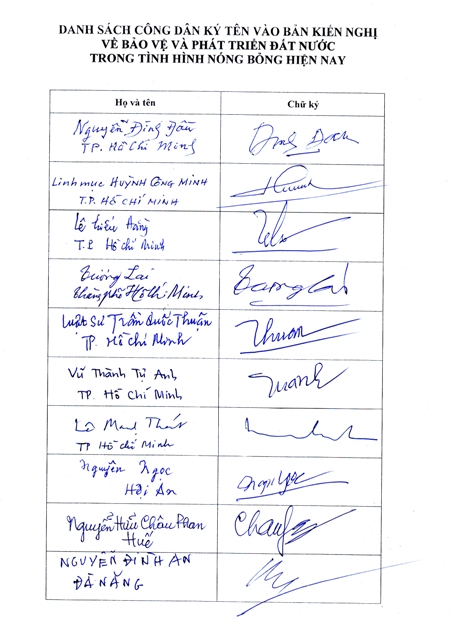 DANH SÁCH CÔNG DÂN KÝ TÊN VÀO BẢN KIẾN NGHỊ
VỀ BẢO VỆ VÀ PHÁT TRIỂN ĐẤT NƯỚC
TRONG TÌNH HÌNH NÓNG BỎNG HIỆN NAY
Họ và tên
Chữ ký
Nguyễn Đình Đầu
TP. Hồ Chí Minh
Linh mục HUỲNH CÔNG MINH
T.P. HỒ CHÍ MINH
Lê Hiếu Đằng
T.P Hồ Chí Minh
Tương Lai
Thành phố Hồ Chí Minh
Tương Lai
Luật Sư Trần Quốc Thuận
TP. Hồ Chí Minh
Thuan
Vũ Thành Tự Anh
TP. Hồ Chí Minh
Lê Mạnh Thát
TP Hồ Chí Minh
Nguyên Ngọc
Hội An
Nguyễn Hữu Châu Phan
Huế
NGUYỄN ĐÌNH AN
ĐÀ NẴNG